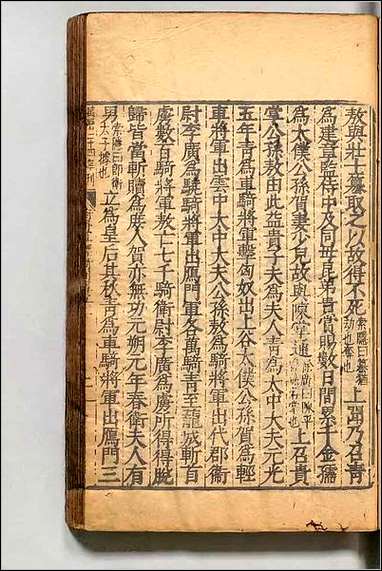 敖與壯士篡取之以故得不死索隱曰篡猶劫也奪也上聞乃召青
為建章監侍中及同母昆弟貴賞賜數日間累千金孺
為太僕公孫賀妻少兒故與陳掌通上召貴
掌公孫敖由此益貴子夫為夫人青為太中大夫元光
五年青為車騎將軍擊匈奴出上谷太僕公孫賀為輕
車將軍出雲中太中大夫公孫敖為騎將軍出代郡衛
尉李廣為驍騎將軍出鴈門軍各萬騎青至蘢城斬首
虜數百騎將軍敖亡七千騎衛尉李廣為虜所得得脫
歸皆當斬贖為庶人賀亦無功元朔元年春衛夫人有
男索隱曰即衛太子據也立為皇后其秋青為車騎將軍出鴈門三